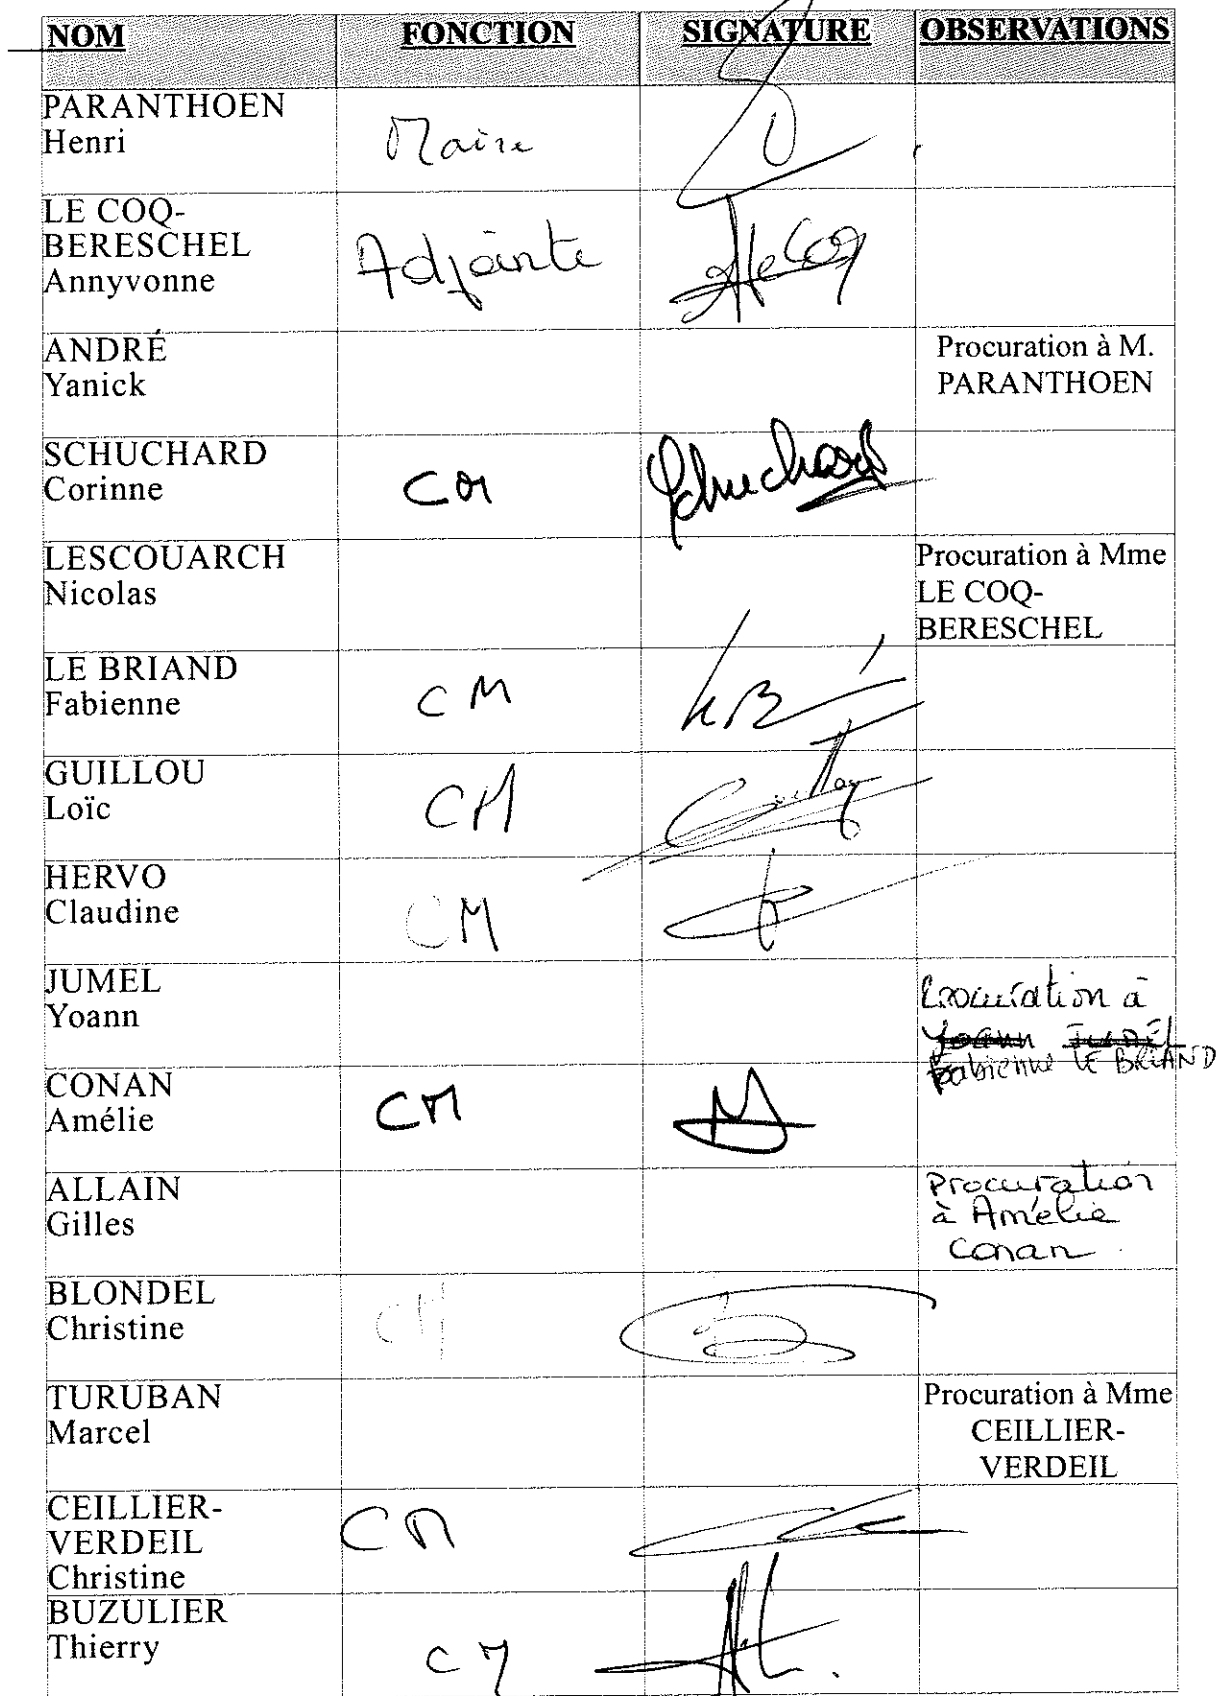 NOM FONCTION SIGNATURE OBSERVATIONS
PARANTHOEN
Henri
Maire
LE COQ-
BERESCHEL
Annyvonne
Adjointe
ALeCoq
ANDRÉ
Yanick
Procuration à M.
PARANTHOEN
SCHUCHARD
Corinne
CM
Schuchard
LESCOUARCH
Nicolas
Procuration à Mme
LE COQ-
BERESCHEL
LE BRIAND
Fabienne
CM
GUILLOU
Loïc
CM
HERVO
Claudine
CM
JUMEL
Yoann
Procuration à
Yoann Jumel
Fabienne LE BRIAND
CONAN
Amélie
CM
ALLAIN
Gilles
Procuration
à Amélie
Conan.
BLONDEL
Christine
CM
TURUBAN
Marcel
Procuration à Mme
CEILLIER-
VERDEIL
CEILLIER-
VERDEIL
Christine
CM
BUZULIER
Thierry
CM